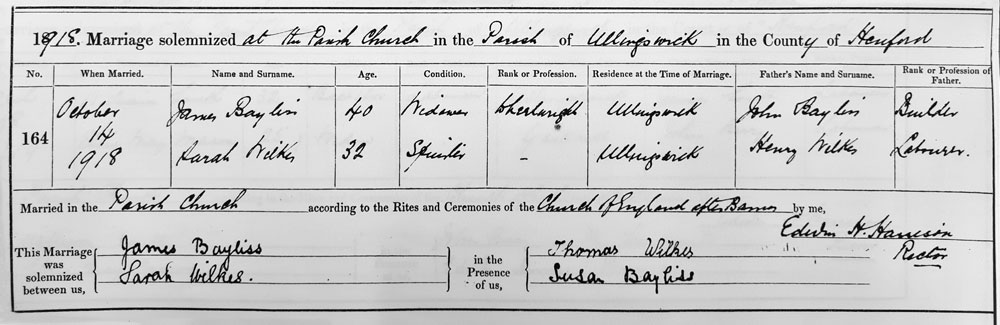 1918. Marriage solemnized at the Parish Church in the Parish of Ullingswick in the County of Hereford
No. When Married. Name and Surname. Age. Condition. Rank or Profession. Residence at the Time of Marriage. Father's Name and Surname. Rank or Profession of Father.
164
October 14 1918
James Bayliss 40 Widower Wheelwright Ullingswick John Bayliss Builder
Sarah Wilkes 32 Spinster – Ullingswick Henry Wilkes Labourer.
Married in the Parish Church according to the Rites and Ceremonies of the Church of England after Banns by me,
Edwin H. Harrison
Rector
This Marriage was solemnized between us,
James Bayliss
Sarah Wilkes.
in the Presence of us,
Thomas Wilkes
Susan Bayliss